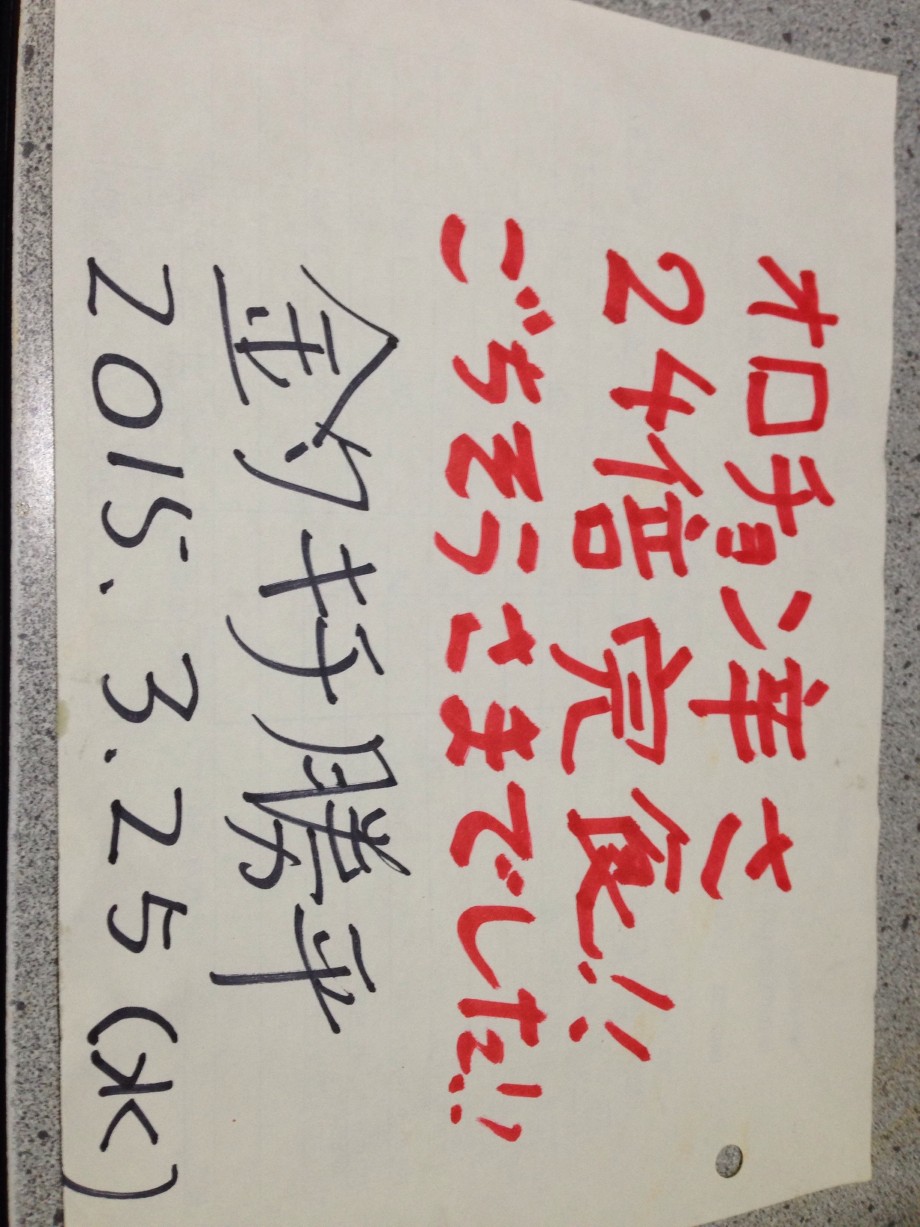 オロチョン 辛さ
24倍 完食!!
ごちそうさまでした!!
釣 勝平
2015.3.25(水)